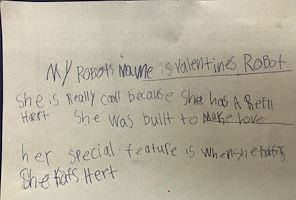 My ROBOTS Name is valentine's ROBOT
She is Really cool because She has A
Hert She was built to Make Love
her special feature is when she
She Hert